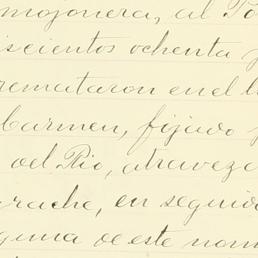 mojonera, al Po
iscientos ochenta y
remataron en el l
Carmen, fijado
del Rio, atraveza
rache, en seguid
guna de este nom